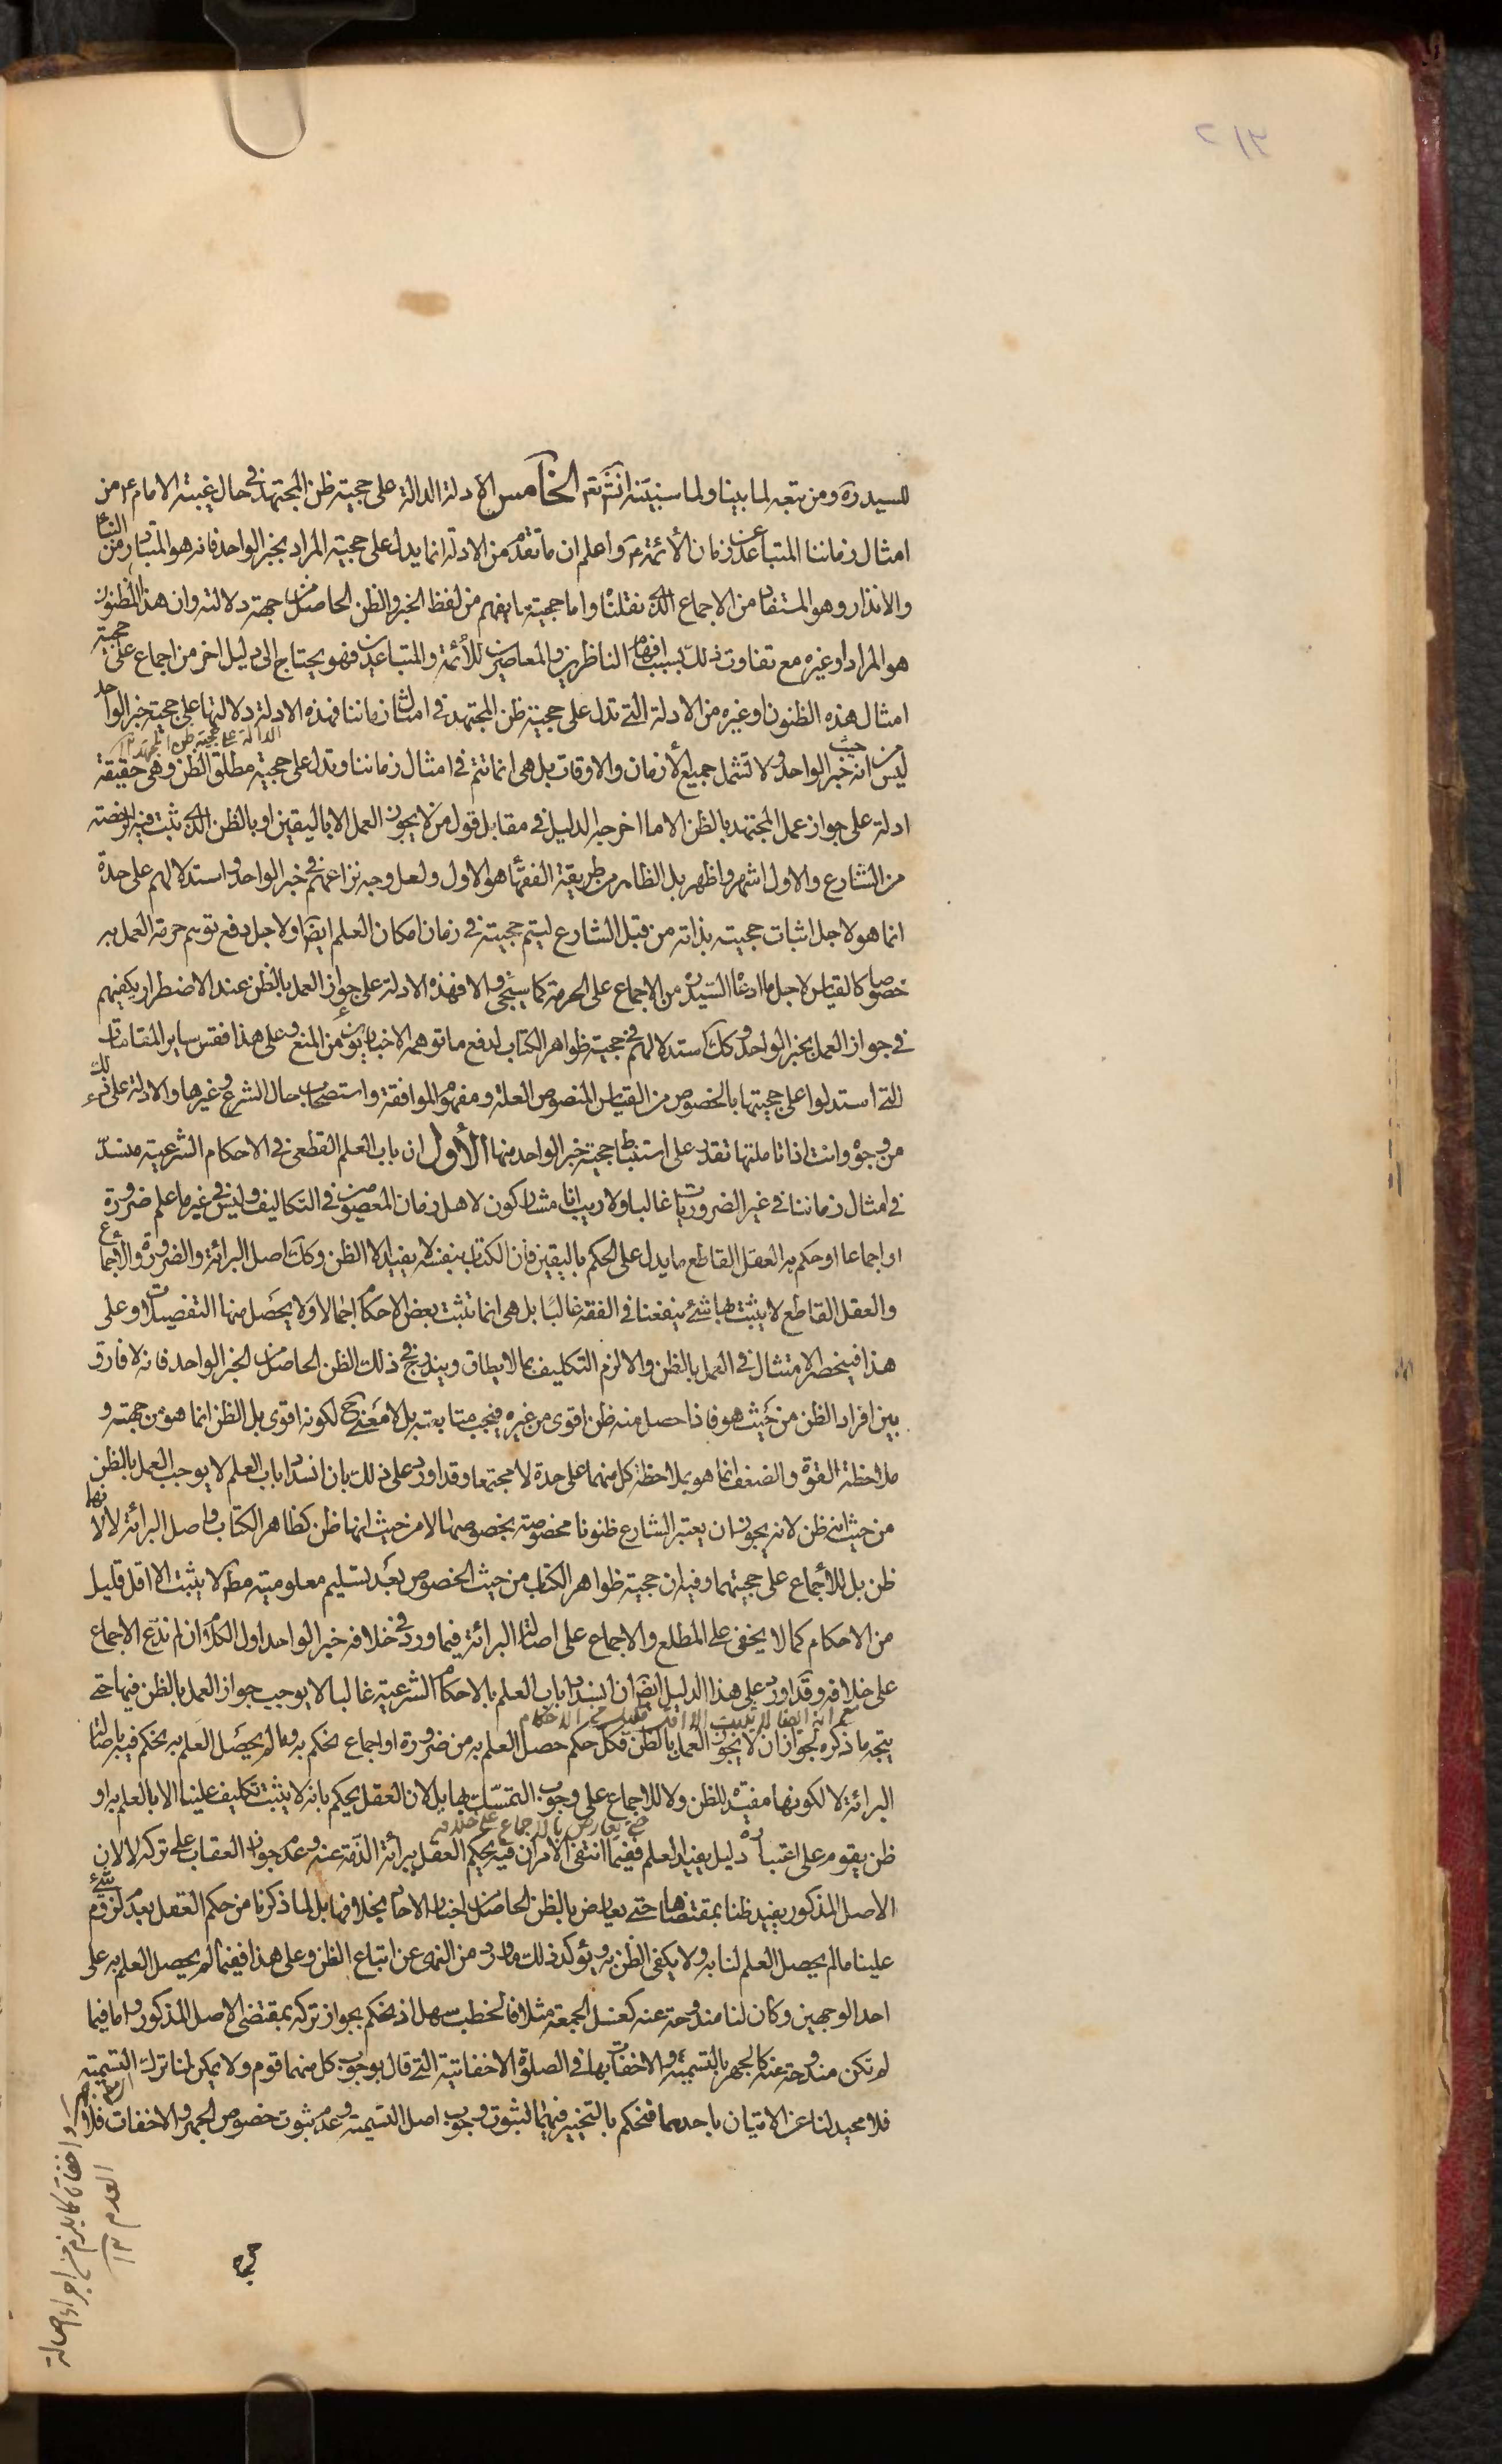 للسيد ره ومن تبعه لما بينا ولما سنبينه انش تع الخامس الادلة الدالة على حجية ظن المجتهد في حال غيبة الامام ع من
امثال زماننا المتباعد عن زمان الأئمة ع واعلم ان ما تقدم من الادلة انما يدل على حجية المراد بخبر الواحد فانه هو المتبادر من النبأ
والانذار وهو المستفاد من الاجماع الذي نقلناه واما حجية ما يفهم من لفظ الخبر والظن الحاصل من جهة دلالته وان هذا المظنون
هو المراد او غيره مع تفاوت ذلك بسبب افهام الناظرين والمعاصرين للأئمة والمتباعدين فهو يحتاج الى دليل اخر من اجماع على حجية
امثال هذه الظنون او غيره من الادلة التي تدل على حجية ظن المجتهد في امثال زماننا فهذه الادلة دلالتها على حجية خبر الواحد
الدالة على حجية ظن المجتهد ١٢
ليس من حيث انه خبر الواحد ولا تشمل جميع الأزمان والاوقات بل هي انما تتم في امثال زماننا وتدل على حجية مطلق الظن وهي حقيقة
ادلة على جواز عمل المجتهد بالظن الا ما اخرجه الدليل في مقابل قول من لا يجوز العمل الا باليقين او بالظن الذي ثبت فيه الرخصة
من الشارع والاول اشهر واظهر بل الظاهر من طريقة الفقهاء هو الاول ولعل وجه نزاعهم في خبر الواحد واستدلالهم على حدة
انما هو لاجل اثبات حجيته بذاته من قبل الشارع ليتم حجيته في زمان امكان العلم ايضا او لاجل دفع توهم حرمة العمل به
خصوصا كالقياس لاجل ما ادعاه السيد ره من الاجماع على الحرمة كما سيجئ والا فهذه الادلة على جواز العمل بالظن عند الاضطرار يكفيهم
في جواز العمل بخبر الواحد وكك استدلالهم في حجية ظواهر الكتاب لدفع ما توهمه الاخباريون من المنع وعلى هذا فقس ساير المقامات
التي استدلوا على حجيتها بالخصوص من القياس المنصوص العلة ومفهوم الموافقة واستصحاب حال الشرع وغيرها والادلة على ذلك
من وجوه وانت اذا تاملتها تقدر على استنباط حجية خبر الواحد منها الأول ان باب العلم القطعي في الاحكام الشرعية منسد
في امثال زماننا في غير الضروريات غالبا ولا ريب انا مشاركون لاهل زمان المعصومين في التكاليف وليس في غير ما علم ضرورة
او اجماعا او حكم به العقل القاطع ما يدل على الحكم باليقين فان الكتاب بنفسه لا يفيد الا الظن وكك اصل البرائة والضرورة والأجماع
والعقل القاطع لا يثبت بها شئ ينفعنا في الفقه غالبا بل هي انما تثبت بعض الاحكام اجمالا ولا يحصل منها التفصيلات وعلى
هذا فينحصر الامتثال في العمل بالظن والا لزم التكليف بما لا يطاق ويندرج في ذلك الظن الحاصل من الخبر الواحد فانه لا فارق
بين افراد الظن من حيث هو فاذا حصل منه ظن اقوى من غيره فيجب متابعته بل لا معنى ح لكونه اقوى بل الظن انما هو من جهته و
ملاحظة القوة والضعف انما هو بملاحظة كل منهما على حدة لا مجتمعا وقد اورد على ذلك بان انسداد باب العلم لا يوجب العمل بالظن
من حيث انه ظن لانه يجوز ان يعتبر الشارع ظنونا مخصوصة بخصوصها لا من حيث انها ظن كظاهر الكتاب واصل البرائة لا لانها
ظن بل للأجماع على حجيتهما وفيه ان حجية ظواهر الكتاب من حيث الخصوص بعد تسليم معلوميته مط لا يثبت الا اقل قليل
من الاحكام كما لا يخفى على المطلع والاجماع على اصالة البرائة فيما ورد في خلافه خبر الواحد اول الكلام ان لم ندع الاجماع
على خلافه وقد اورد على هذا الدليل ايضا ان انسداد باب العلم بالاحكام الشرعية غالبا لا يوجب جواز العمل بالظن فيها حتى
مع انه ايضا لا يثبت الا اقل قليل من الاحكام
يتجه ما ذكره لجواز ان لا يجوز العمل بالظن فكل حكم حصل العلم به من ضرورة او اجماع نحكم به وما لم يحصل العلم به نحكم فيه باصالة
البرائة لا لكونها مفيدة للظن ولا للاجماع على وجوب التمسك بها بل لان العقل يحكم بانه لا يثبت تكليف علينا الا بالعلم به او
حتى يعارض بالاجماع على خلافه
ظن يقوم على اعتباره دليل يفيد العلم ففيما انتفى الامران فيه يحكم العقل ببرائة الذمة عنه وعدم جواز العقاب على تركه لا لان
الاصل المذكور يفيد ظنا بمقتضاها حتى يعارض بالظن الحاصل من اخبار الاحاد بخلافها بل لما ذكرنا من حكم العقل بعدم لزوم شئ
علينا ما لم يحصل العلم لنا به ولا يكفي الظن به ويؤكد ذلك ما ورد من النهى عن اتباع الظن وعلى هذا ففيما لم يحصل العلم به على
احد الوجهين وكان لنا مندوحة عنه كغسل الجمعة مثلا فالخطب سهل اذ نحكم بجواز تركه بمقتضى الاصل المذكور واما فيما
لم تكن مندوحة عنه كالجهر بالتسمية والاخفات بها في الصلوة الاخفاتية التي قال بوجوب كل منهما قوم ولا يمكن لنا ترك التسمية
فلا محيد لنا عن الاتيان باحدهما فنحكم بالتخيير فيهما لثبوت وجوب اصل التسمية وعدم ثبوت خصوص الجهر والاخفات فلا
العدم ١٢